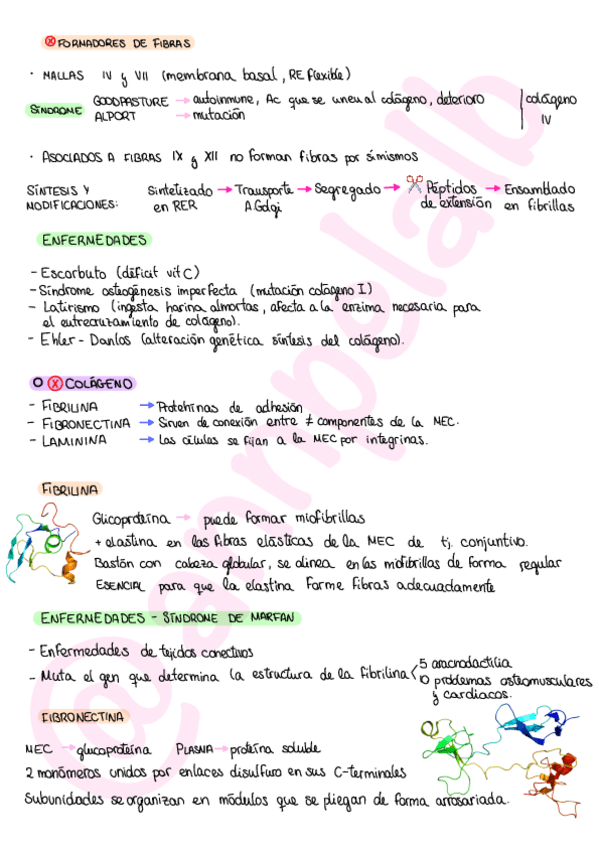 FORMADORES DE FIBRAS
· MALLAS IV y VII (membrana basal, RE flexible)
SÍNDROME GOODPASTURE → autoinmune, Ac que se unen al colágeno, deterioro | colágeno
ALPORT → mutación IV
· ASOCIADOS A FIBRAS IX y XII no forman fibras por sí mismos
SÍNTESIS Y MODIFICACIONES: Sintetizado en RER → Transporte A.Golgi → Segregado → Péptidos de extensión → Ensamblado en fibrillas
ENFERMEDADES
- Escorbuto (déficit vit C)
- Síndrome osteogénesis imperfecta (mutación colágeno I)
- Latirismo (ingesta harina almortas, afecta a la enzima necesaria para
el entrecruzamiento de colágeno).
- Ehler - Danlos (alteración genética síntesis del colágeno).
O X COLÁGENO
- FIBRILINA → Proteínas de adhesión
- FIBRONECTINA → Sirven de conexión entre ≠ componentes de la MEC.
- LAMININA → Las células se fijan a la MEC por integrinas.
FIBRILINA
Glicoproteína → puede formar miofibrillas
+ elastina en las fibras elásticas de la MEC de tj. conjuntivo.
Bastón con cabeza globular, se alinea en las miofibrillas de forma regular
ESENCIAL para que la elastina forme fibras adecuadamente
ENFERMEDADES - SÍNDROME DE MARFAN
- Enfermedades de tejidos conectivos
- Muta el gen que determina la estructura de la fibrilina < 5 aracnodactilia
10 problemas osteomusculares
y cardiacos.
FIBRONECTINA
MEC → glucoproteína PLASMA → proteína soluble
2 monómeros unidos por enlaces disulfuro en sus C-terminales
Subunidades se organizan en módulos que se pliegan de forma arrosariada.
@annpelalb